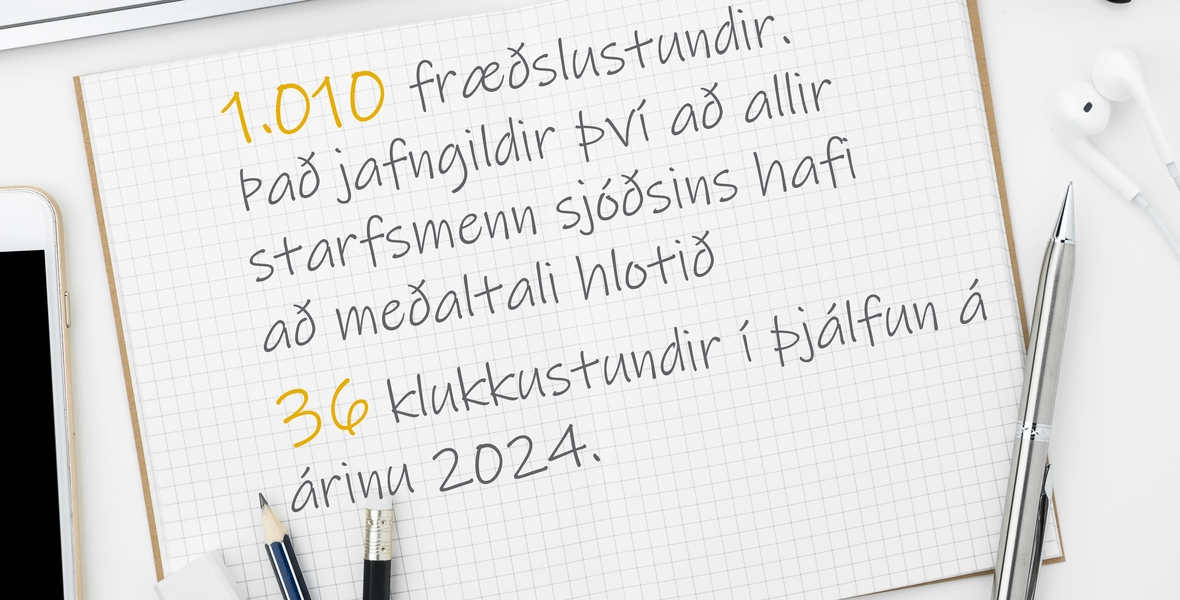 1.010 fræðslustundir.
Það jafngildir því að allir
starfsmenn sjóðsins hafi
að meðaltali hlotið
36 klukkustundir í þjálfun á
árinu 2024.